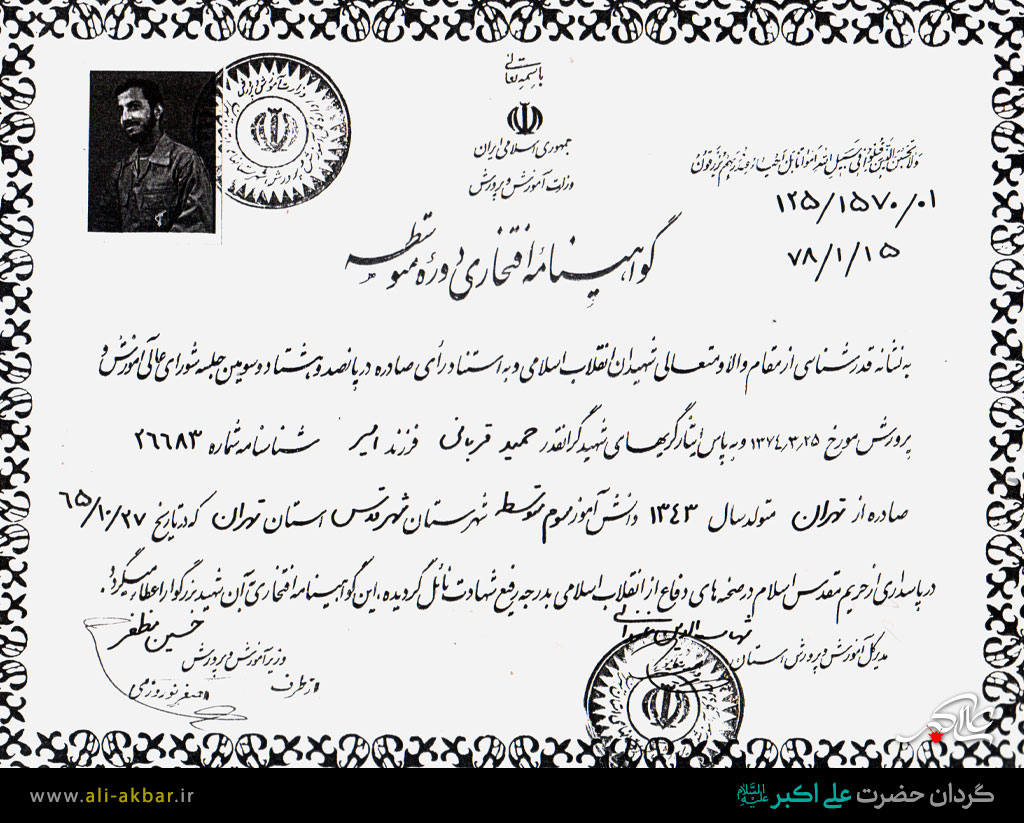 باسمه تعالی
جمهوری اسلامی ایران
وزارت آموزش و پرورش
ولا تحسبن الذین قتلوا فی سبیل الله امواتا بل احیاء عند ربهم یرزقون
۱۲۵/۱۵۷۰/۰۱
۷۸/۱/۱۵
گواهینامهٔ افتخاری دورهٔ متوسطه
به نشانه قدرشناسی از مقام والا و متعالی شهیدان انقلاب اسلامی و به استناد رأی صادره در پانصد و هشتاد و سومین جلسه شورای عالی آموزش و
پرورش مورخ ۱۳۷۴/۳/۲۵ و به پاس ایثارگریهای شهید گرانقدر حمید قربانی فرزند امیر شناسنامه شماره ۲۶۶۸۳
صادره از تهران متولد سال ۱۳۴۳ دانش آموز سوم متوسطه شهرستان شهر قدس استان تهران که در تاریخ ۶۵/۱۰/۲۷
در پاسداری از حریم مقدس اسلام در صحنه های دفاع از انقلاب اسلامی بدرجه رفیع شهادت نائل گردیده، این گواهینامه افتخاری آن شهید بزرگوار اعطا میگردد.
حسین مظفر
وزیر آموزش و پرورش
از طرف
اصغر نوروزی
مدیر کل آموزش و پرورش استان
www.ali-akbar.ir
گردان حضرت علی اکبر علیه السلام